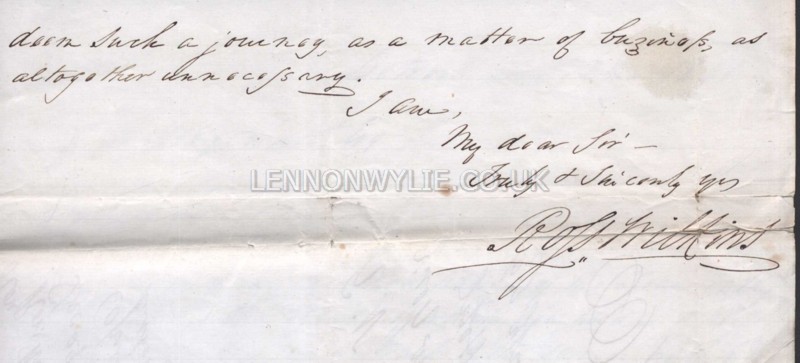 deem such a journey, as a matter of business, as
altogether unnecessary.
I am,
My dear Sir —
Truly & Sincerely yrs
LENNONWYLIE.CO.UK
Ross Wilkins